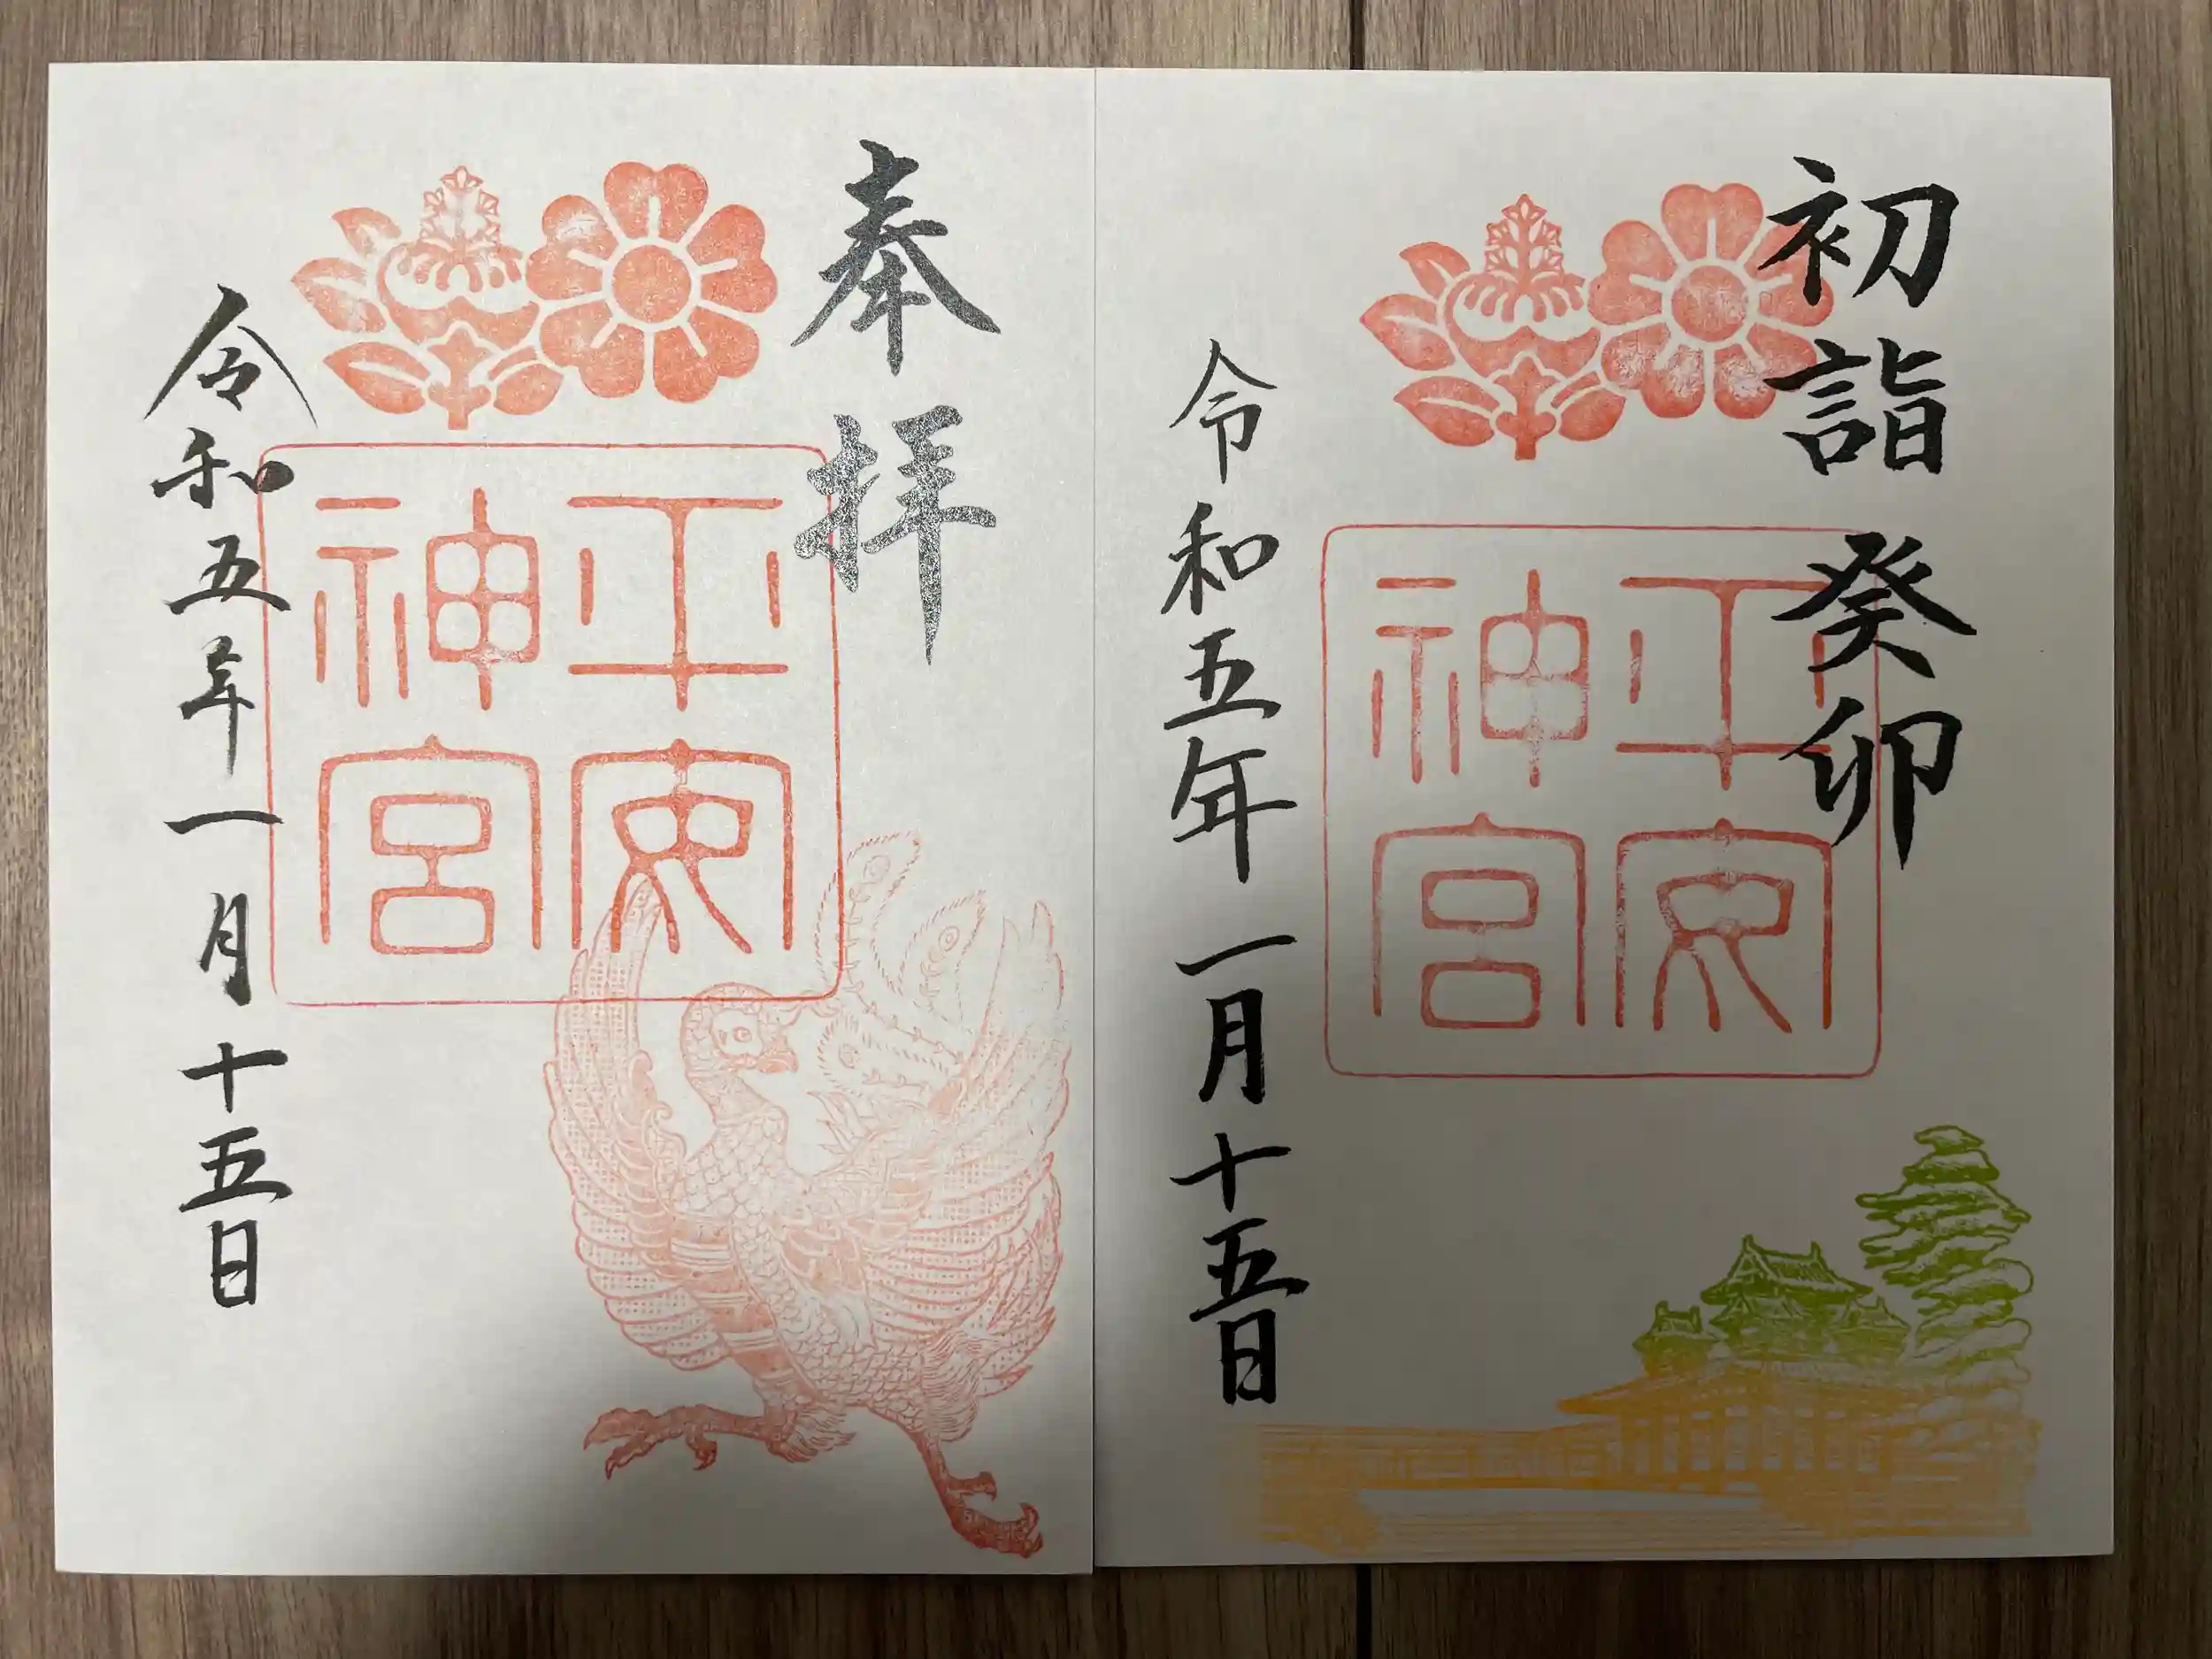 初詣 癸卯
平安
神宮
令和五年一月十五日
奉拝
平安
神宮
令和五年一月十五日